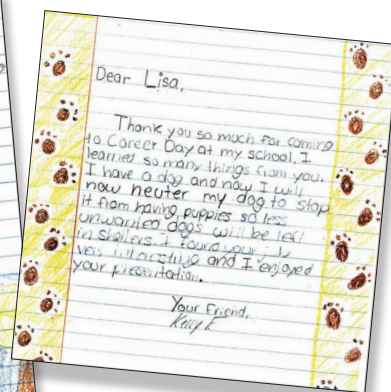 Dear Lisa,
Thank you so much for coming
to Career Day at my school. I
learned so many things from you.
I have a dog and now I will
now neuter my dog to stop
it from having puppies so less
unwanted dogs will be left
in shelters. I found your
very interesting and I enjoyed
your presentation.
Your Friend,
Kerry F